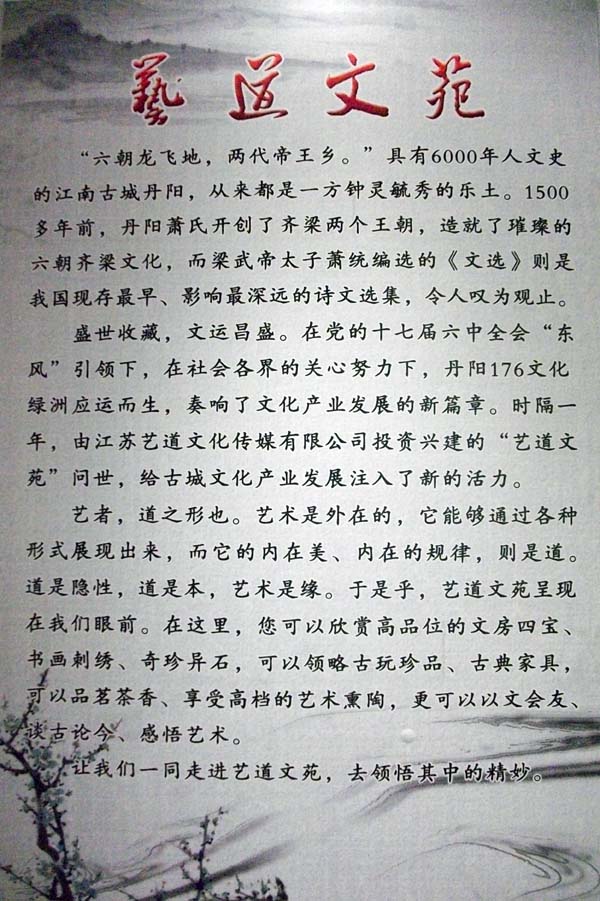 藝道文苑
“六朝龙飞地，两代帝王乡。”具有6000年人文史
的江南古城丹阳，从来都是一方钟灵毓秀的乐土。1500
多年前，丹阳萧氏开创了齐梁两个王朝，造就了璀璨的
六朝齐梁文化，而梁武帝太子萧统编选的《文选》则是
我国现存最早、影响最深远的诗文选集，令人叹为观止。
盛世收藏，文运昌盛。在党的十七届六中全会“东
风”引领下，在社会各界的关心努力下，丹阳176文化
绿洲应运而生，奏响了文化产业发展的新篇章。时隔一
年，由江苏艺道文化传媒有限公司投资兴建的“艺道文
苑”问世，给古城文化产业发展注入了新的活力。
艺者，道之形也。艺术是外在的，它能够通过各种
形式展现出来，而它的内在美、内在的规律，则是道。
道是隐性，道是本，艺术是缘。于是乎，艺道文苑呈现
在我们眼前。在这里，您可以欣赏高品位的文房四宝、
书画刺绣、奇珍异石，可以领略古玩珍品、古典家具，
可以品茗茶香、享受高档的艺术熏陶，更可以以文会友、
谈古论今、感悟艺术。
让我们一同走进艺道文苑，去领悟其中的精妙。